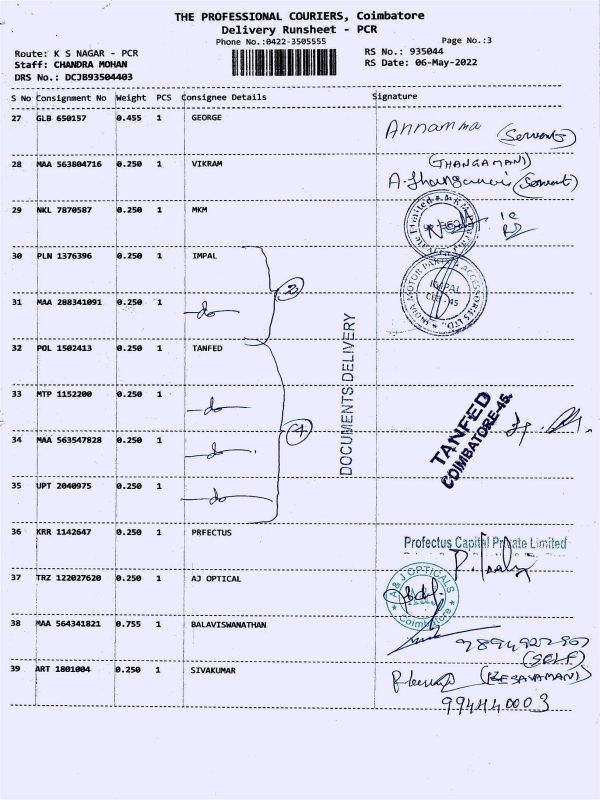 THE PROFESSIONAL COURIERS, Coimbatore
Delivery Runsheet - PCR
Phone No.:0422-3505555
Page No.:3
Route: K S NAGAR - PCR
RS No.: 935044
Staff: CHANDRA MOHAN
RS Date: 06-May-2022
DRS No.: DCJB93504403
S No Consignment No Weight PCS Consignee Details Signature
27 GLB 650157 0.455 1 GEORGE
Annamma (Servent)
28 MAA 563804716 0.250 1 VIKRAM
(THANGAMANI)
(Servent)
29 NKL 7870587 0.250 1 MKM
30 PLN 1376396 0.250 1 IMPAL
2
INDIA MOTOR PARTS & ACCESSORIES LTD.,
IMPAL
CBE-45
31 MAA 288341091 0.250 1 -do-
32 POL 1502413 0.250 1 TANFED
DOCUMENTS DELIVERY
33 MTP 1152200 0.250 1 -do-
4
TANFED
COIMBATORE-45.
34 MAA 563547828 0.250 1 -do-
35 UPT 2040975 0.250 1 -do-
36 KRR 1142647 0.250 1 PRFECTUS
Profectus Capital Private Limited
37 TRZ 122027620 0.250 1 AJ OPTICAL
A & J OPTICALS
Coimbatore
38 MAA 564341821 0.755 1 BALAVISWANATHAN
(SELF)
39 ART 1801004 0.250 1 SIVAKUMAR
(KESAVAMANI)